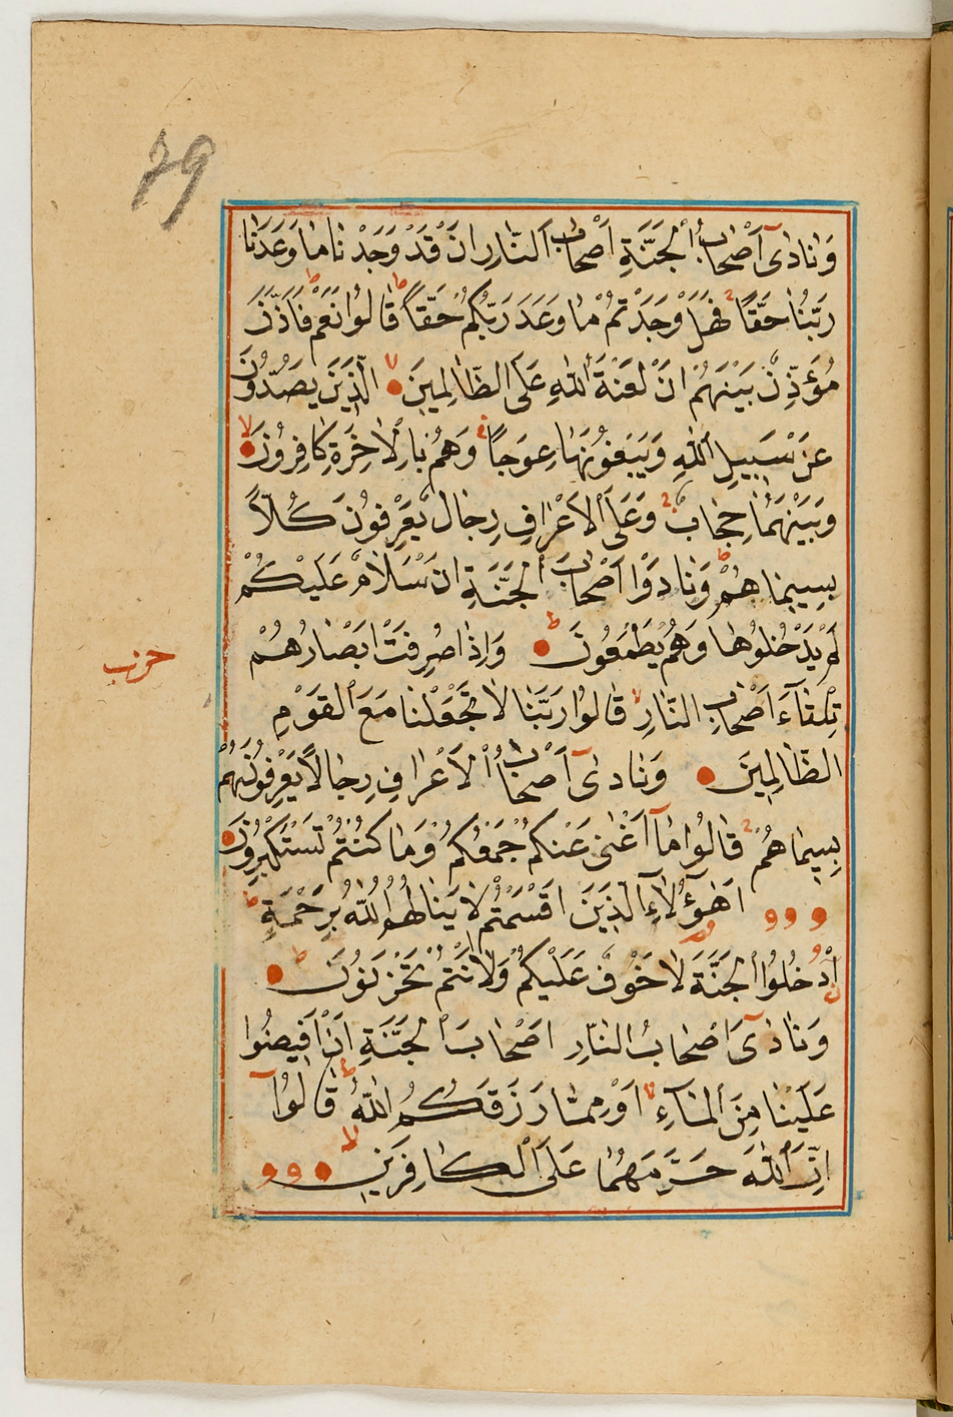 79
وَنَادٰىٓ اَصْحَابُ الْجَنَّةِ اَصْحَابَ النَّارِ اَنْ قَدْ وَجَدْنَا مَا وَعَدَنَا
رَبُّنَا حَقًّا فَهَلْ وَجَدْتُمْ مَا وَعَدَ رَبُّكُمْ حَقًّا قَالُوا نَعَمْ فَاَذَّنَ
مُؤَذِّنٌ بَيْنَهُمْ اَنْ لَعْنَةُ اللّٰهِ عَلَى الظَّالِمِينَ الَّذِينَ يَصُدُّونَ
عَنْ سَبِيلِ اللّٰهِ وَيَبْغُونَهَا عِوَجًا وَهُمْ بِالْاٰخِرَةِ كَافِرُونَ
وَبَيْنَهُمَا حِجَابٌ وَعَلَى الْاَعْرَافِ رِجَالٌ يَعْرِفُونَ كُلًّا
بِسِيمَاهُمْ وَنَادَوْا اَصْحَابَ الْجَنَّةِ اَنْ سَلَامٌ عَلَيْكُمْ
لَمْ يَدْخُلُوهَا وَهُمْ يَطْمَعُونَ وَاِذَا صُرِفَتْ اَبْصَارُهُمْ
حزب
تِلْقَآءَ اَصْحَابِ النَّارِ قَالُوا رَبَّنَا لَا تَجْعَلْنَا مَعَ الْقَوْمِ
الظَّالِمِينَ وَنَادٰىٓ اَصْحَابُ الْاَعْرَافِ رِجَالًا يَعْرِفُونَهُمْ
بِسِيمَاهُمْ قَالُوا مَآ اَغْنٰى عَنْكُمْ جَمْعُكُمْ وَمَا كُنْتُمْ تَسْتَكْبِرُونَ
اَهٰٓؤُلَآءِ الَّذِينَ اَقْسَمْتُمْ لَا يَنَالُهُمُ اللّٰهُ بِرَحْمَةٍ
اُدْخُلُوا الْجَنَّةَ لَا خَوْفٌ عَلَيْكُمْ وَلَا اَنْتُمْ تَحْزَنُونَ
وَنَادٰىٓ اَصْحَابُ النَّارِ اَصْحَابَ الْجَنَّةِ اَنْ اَفِيضُوا
عَلَيْنَا مِنَ الْمَآءِ اَوْ مِمَّا رَزَقَكُمُ اللّٰهُ قَالُوٓا
اِنَّ اللّٰهَ حَرَّمَهُمَا عَلَى الْكَافِرِينَ